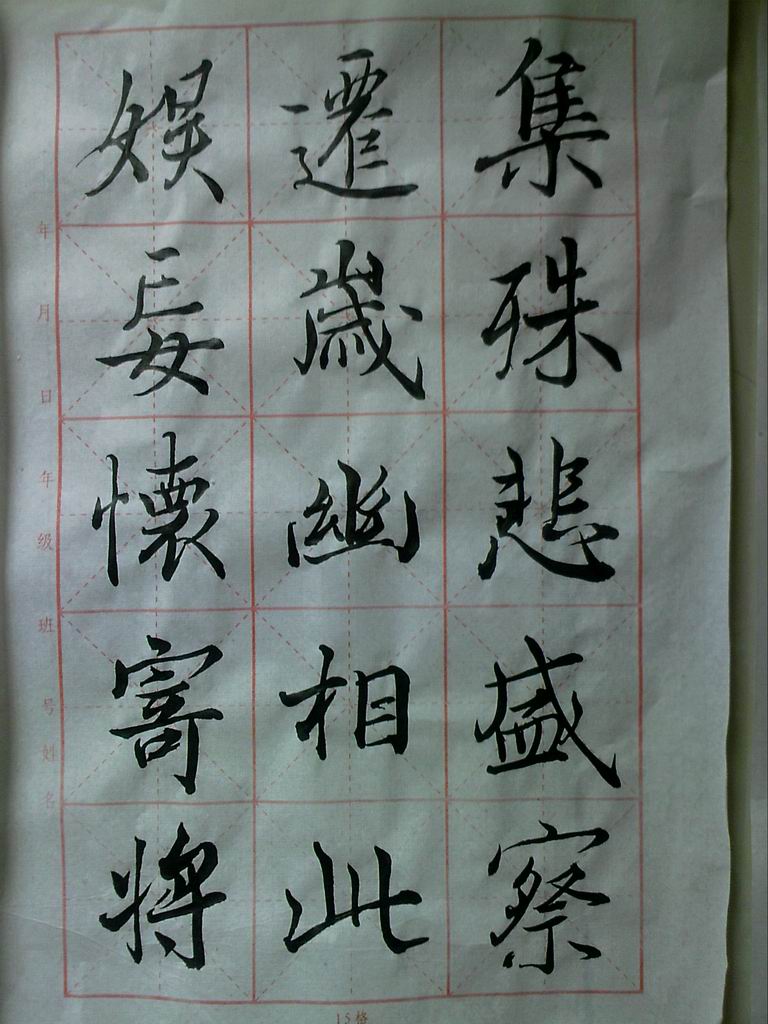 集殊悲盛察
遷歲幽相此
娛妄懷寄將
年 月 日 年级 班 号 姓名
15格